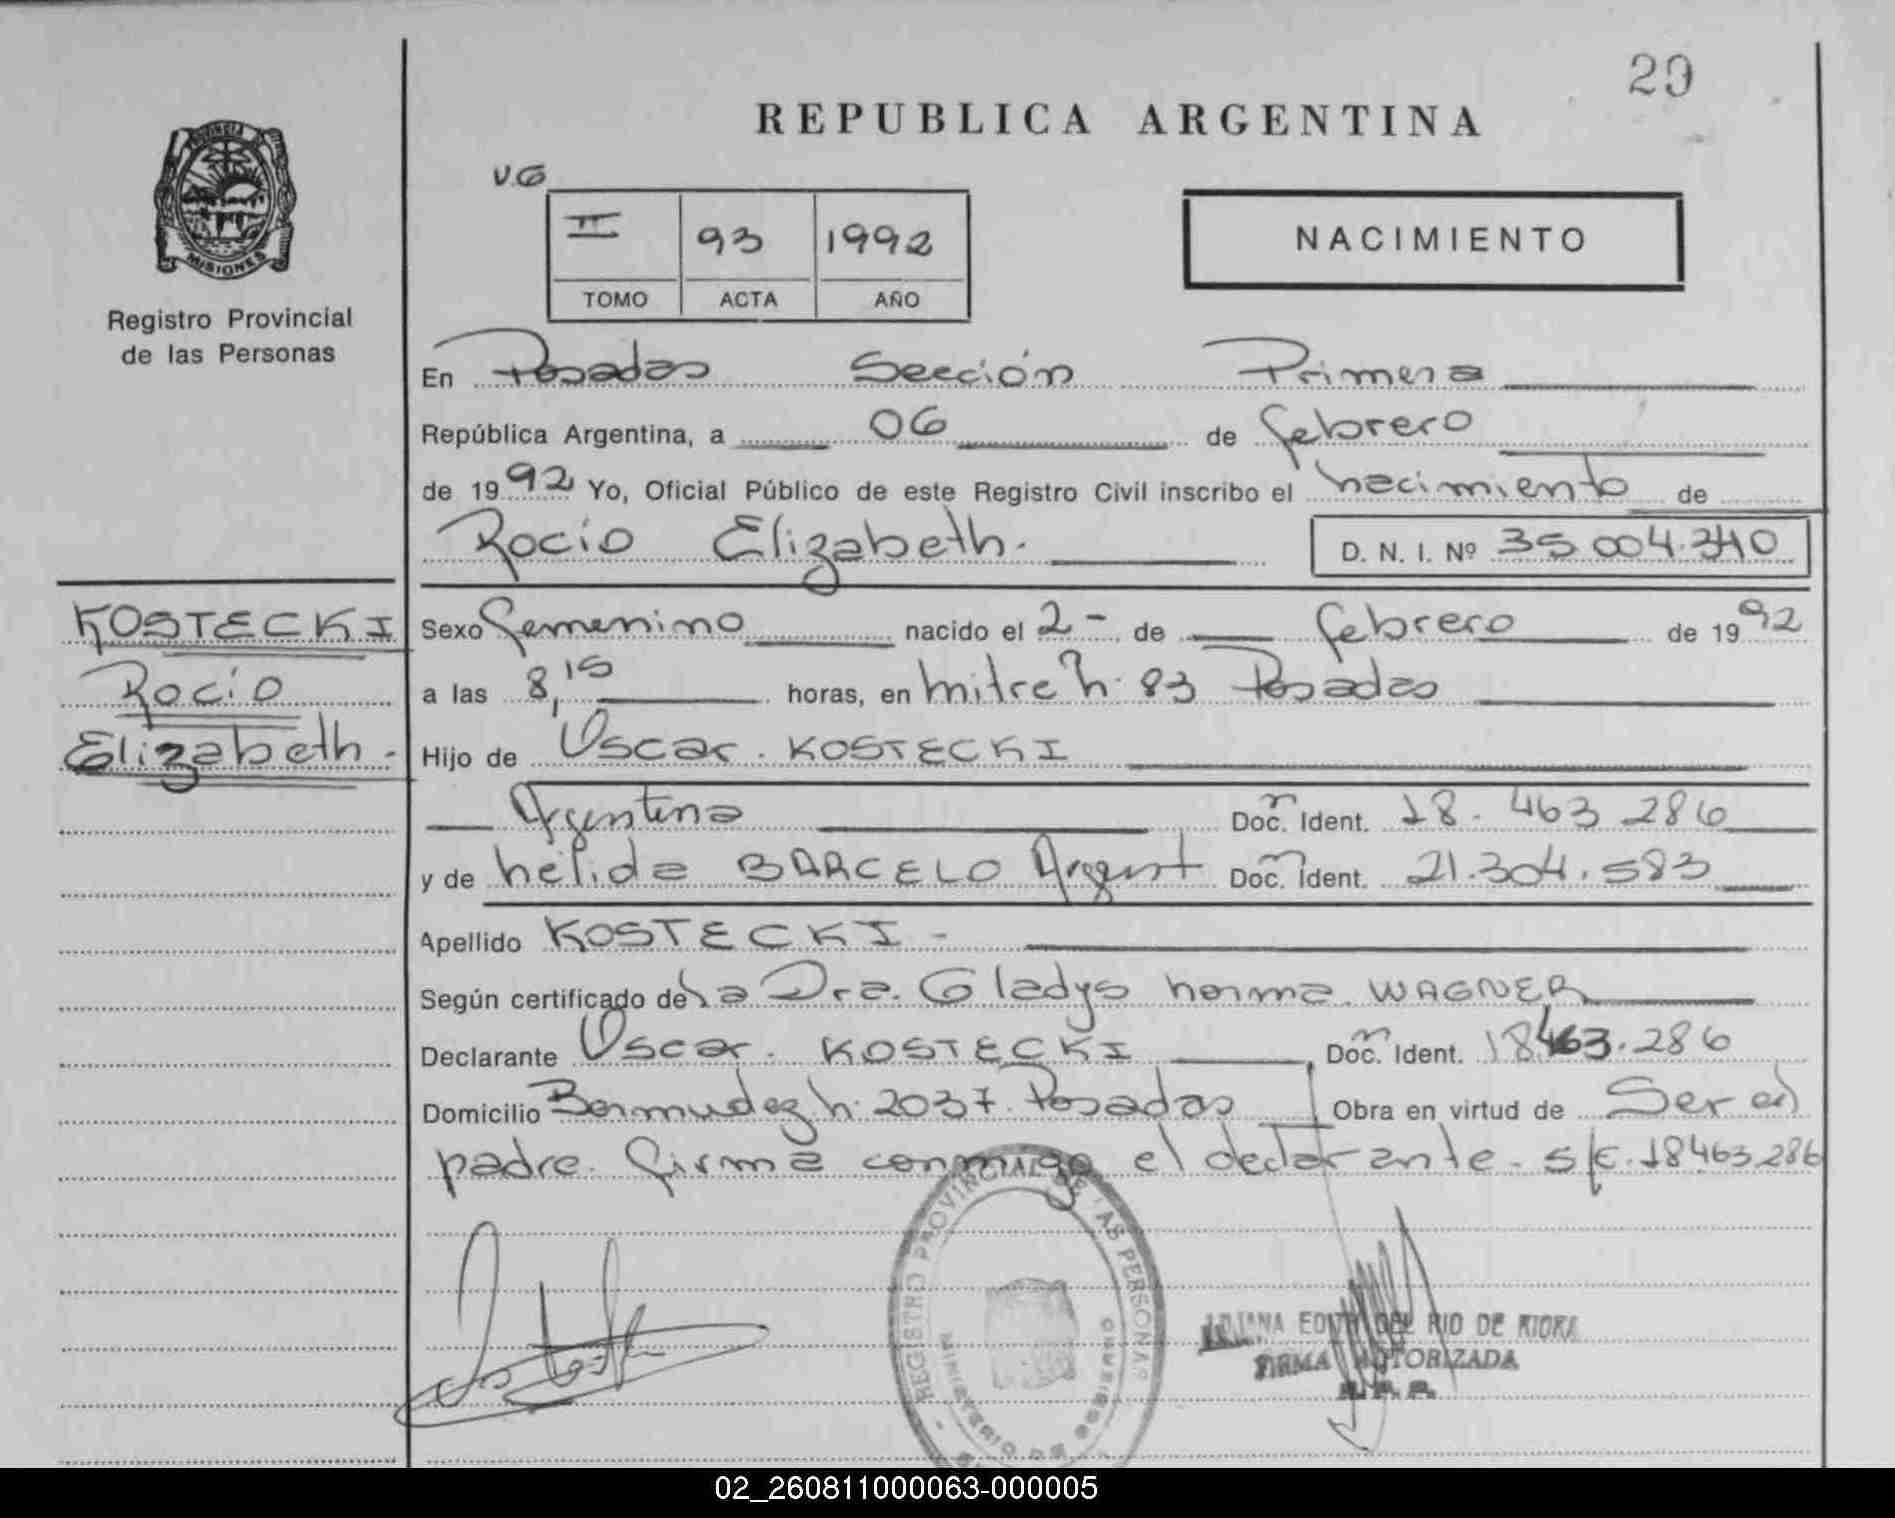 29
REPUBLICA ARGENTINA
PROVINCIA
MISIONES
Registro Provincial
de las Personas
V.G
II 93 1992
TOMO ACTA AÑO
NACIMIENTO
En Posadas Sección Primera
República Argentina, a 06 de febrero
de 1992 Yo, Oficial Público de este Registro Civil inscribo el nacimiento de
Rocio Elizabeth.
D. N. I. Nº 35.004.340
KOSTECKI
Rocio
Elizabeth.-
Sexo femenino nacido el 2- de febrero de 1992
a las 8,15 horas, en mitre n: 83 Posadas
Hijo de Oscar. KOSTECKI
Argentina Doc. Ident. 18. 463 286
y de nelida BARCELO Argent Doc. Ident. 21.304.583
Apellido KOSTECKI-
Según certificado de la Dra. Gladys norma. WAGNER
Declarante Oscar. KOSTECKI Doc. Ident. 18463.286
Domicilio Bermudez n: 2037. Posadas Obra en virtud de Ser el
padre. firma conmigo el declarante. s/c. 18463286
REGISTRO PROVINCIAL DE LAS PERSONAS
MINISTERIO DE GOBIERNO
EDITH DEL RIO DE
FIRMA AUTORIZADA
02_260811000063-000005